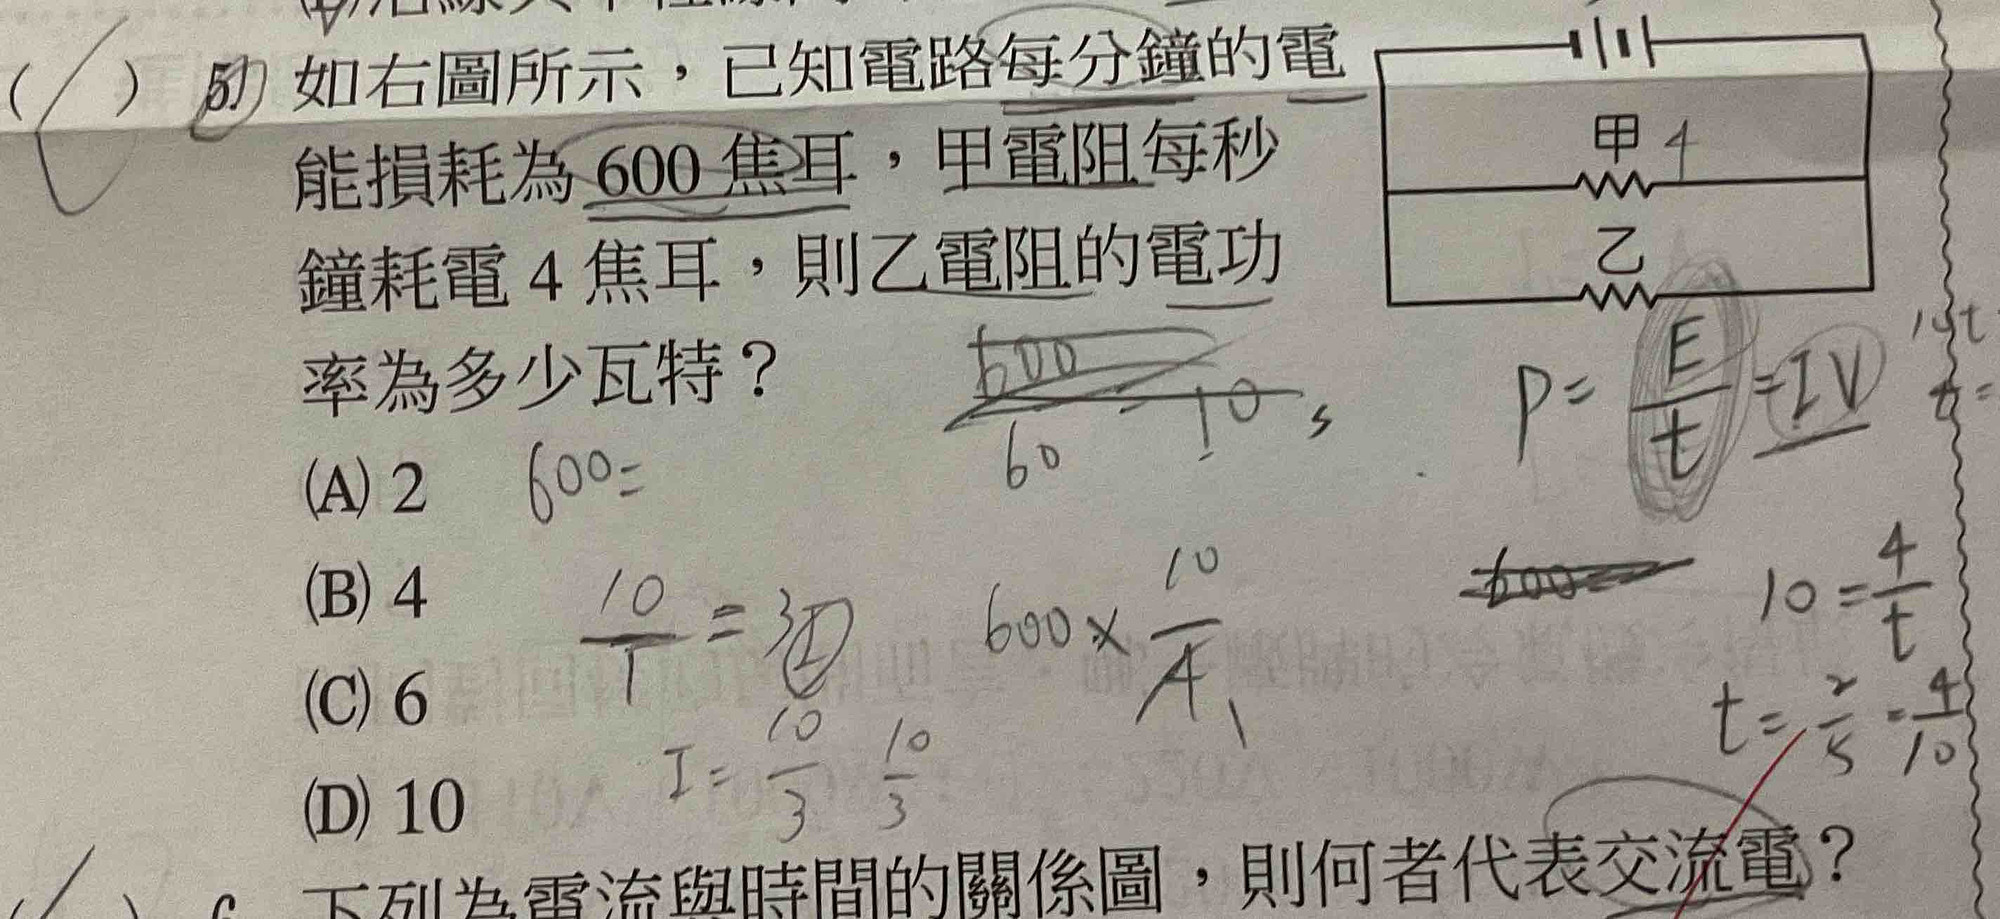 ( ) 5. 如右圖所示，已知電路每分鐘的電
能損耗為 600 焦耳，甲電阻每秒
鐘耗電 4 焦耳，則乙電阻的電功
率為多少瓦特？
(A) 2
(B) 4
(C) 6
(D) 10
甲 4
乙
600
60
10 s
P= E/t =IV
600=
10/1 =3
600× 10/4
I= 10/3 10/3
10= 4/t
t= 2/5 = 4/10
下列為電流與時間的關係圖，則何者代表交流電？